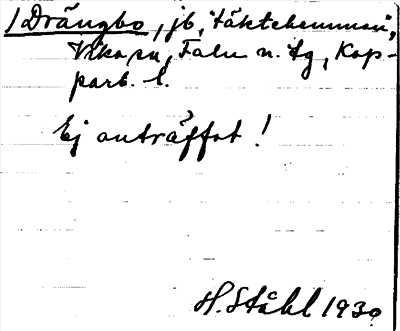 /Drängbo, jb, "täktehemman",
Vika sn, Falu n. tg, Kop-
parb. l.
Ej anträffat!
H. Ståhl 1930